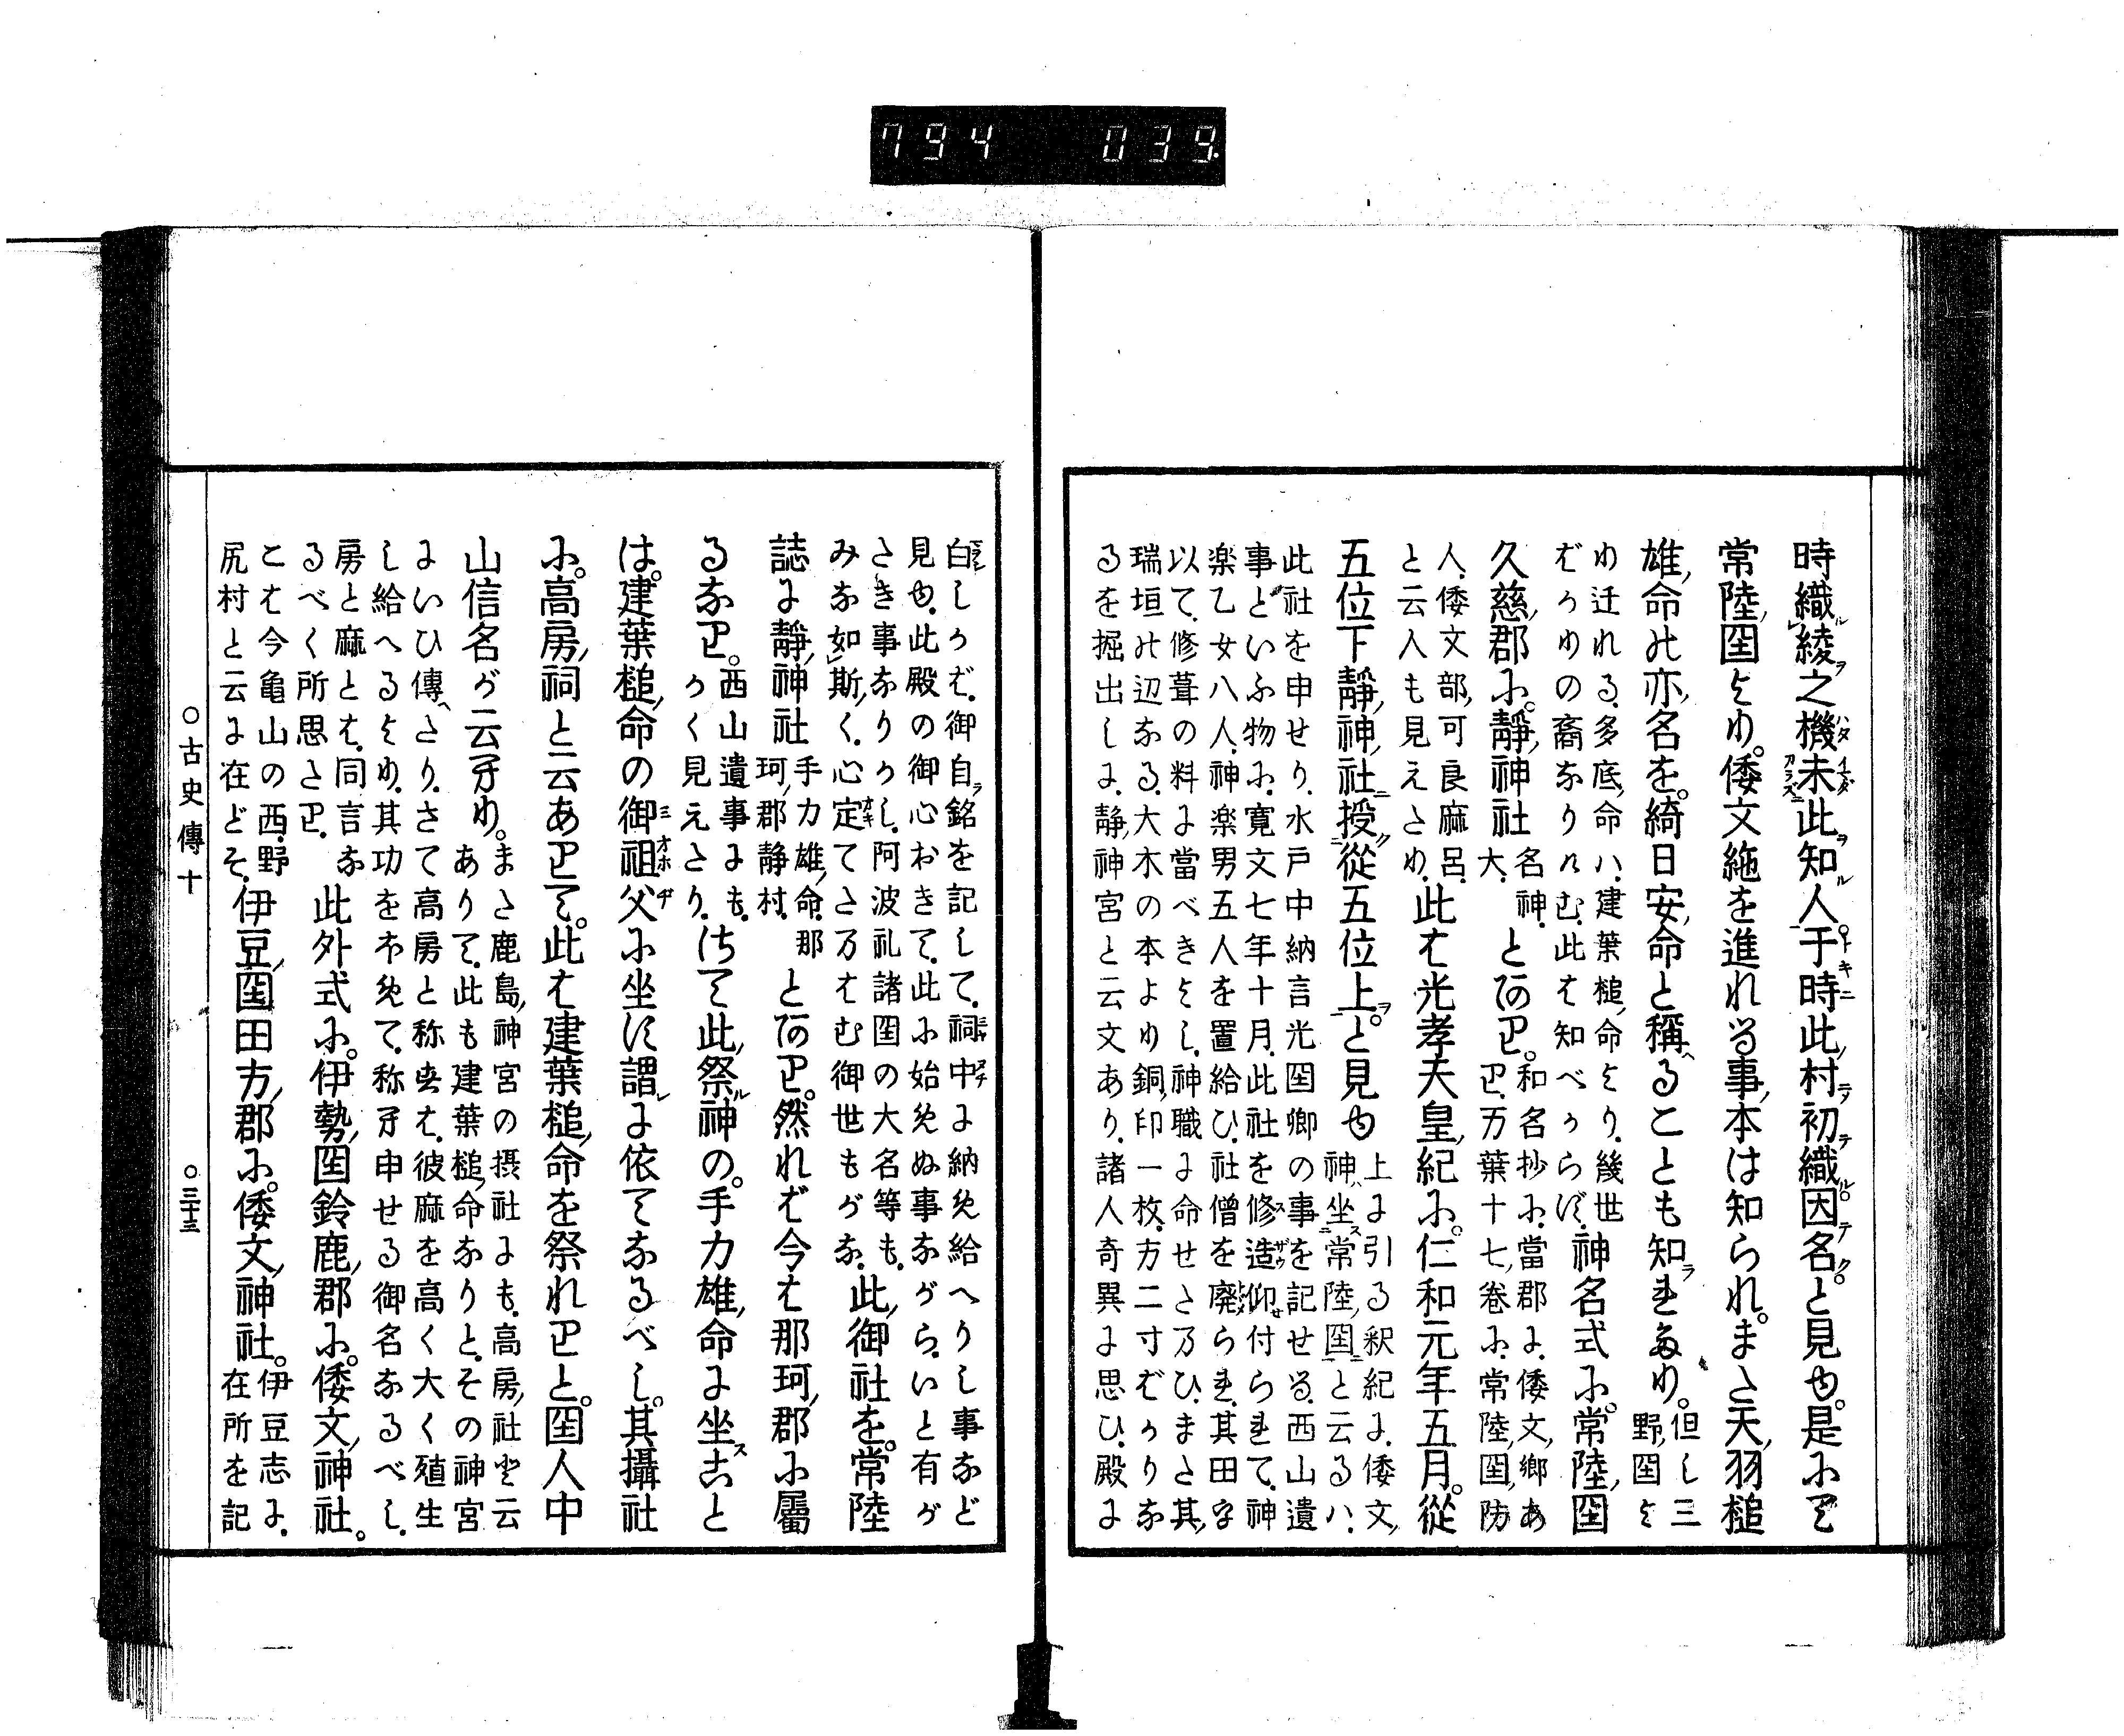 時織綾之機未此知人于時此村初織因名と見ゆ。是にて
常陸国より。倭文絁を進れる事本は知られ。また天羽槌
雄命の亦名を。綺日安命と稱へることも知られたり。但し三
野国よ
り迁れる。多底命ハ。建葉槌命より。幾世
ばかりの裔なりけむ。此は知べからず。神名式に。常陸国
久慈郡に。靜神社名神
大。とあり。和名抄に。當郡に。倭文郷あ
り。万葉十七卷に。常陸国防
人。倭文部可良麻呂。
と云人も見えたり。此は光孝天皇紀に。仁和元年五月。從
五位下靜神社授從五位上と見ゆ上に引る釈紀に。倭文
神坐常陸国と云るハ。
此社を申せり。水戸中納言光国卿の事を記せる。西山遺
事といふ物に。寛文七年十月。此社を修造仰付られて。神
楽乙女八人。神楽男五人を置給ひ。社僧を廃られ其田字
以て。修葺の料に當べきよし。神職に命せたまひ。また其
瑞垣の辺なる。大木の本より銅印一枚。方二寸ばかりな
るを掘出しに。静神宮と云文あり。諸人奇異に思ひ。殿に
白しかば。御自銘を記して。祠中に納め給へりし事など
見ゆ。此殿の御心おきて。此に始めぬ事ながら。いと有が
たき事なりかし。阿波礼諸国の大名等も。
みな如斯く。心定てたまはむ御世もがな。此御社を。常陸
誌に靜神社手力雄命。那
珂郡静村。とあり。然れば今は那珂郡に屬
るなり。西山遺事にも。
かく見えたり。さて此祭神の。手力雄命に坐こと
は。建葉槌命の御祖父に坐す謂に依てなるべし。其攝社
に。高房祠と云ありて。此は建葉槌命を祭れりと。国人中
山信名が云へり。また鹿島神宮の摂社にも。高房社と云
ありて。此も建葉槌命なりと。その神宮
にいひ傳へたり。さて高房と称せは。彼麻を高く大く殖生
し給へるより。其功をほめて。称へ申せる御名なるべし。
房と麻とは。同言な
るべく所思たり。此外式に。伊勢国鈴鹿郡に。倭文神社。
こは今亀山の西。野
尻村と云に在とぞ。伊豆国田方郡に。倭文神社。伊豆志に。
在所を記
○古史傳十 ○三十三
794 039